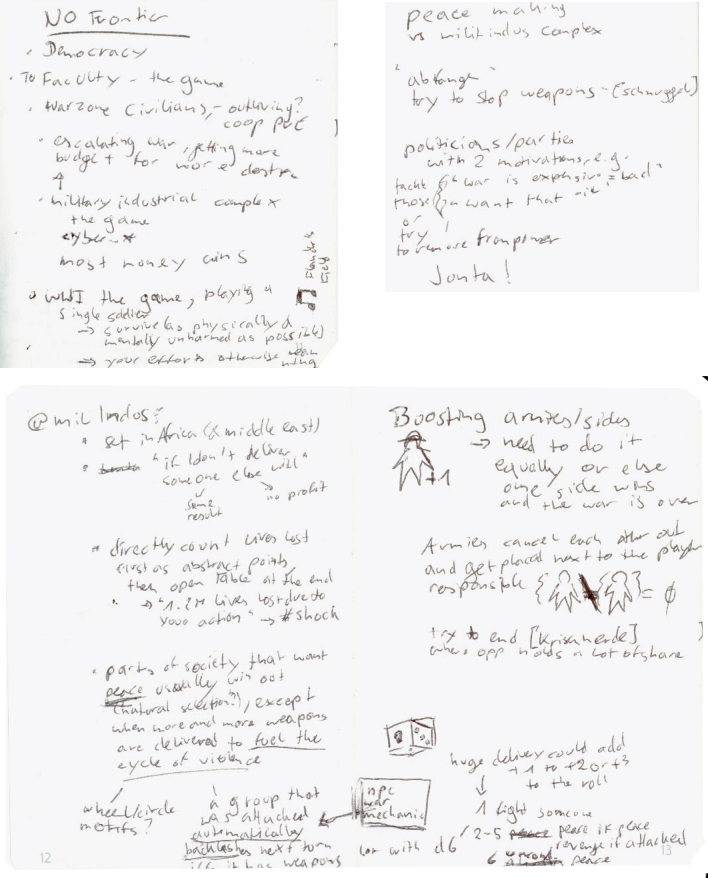 NO Frontier
• Democracy
• To Faculty - the game
• warzone civilians, - outliving?
coop PvE
• escalating war, getting more
budget for more destru
↑
• military industrial complex
the game
cyber-*
most money wins
• WWI the game, playing a
single soldier
→ survive (as physically &
mentally unharmed as possible)
→ your efforts otherwise mean
peace making
vs milit indus complex
"abfange"
try to stop weapons - [schmuggel]
politicians/parties
with 2 motivations, e.g.
"war is expensive = bad"
those want that
or
try
to remove from power
Junta!
@mil Indus:
• set in Africa (& middle east)
• "if I don't deliver
someone else will"
same
result
no profit
• directly count lives lost
first as abstract points
then open table at the end
→ "1.2M lives lost due to
your action" → #shock
• parts of society that want
peace usually win out
(natural selection?), except
when more and more weapons
are delivered to fuel the
cycle of violence
wheel/circle
motifs?
a group that
was attacked
automatically
backlashes next turn
iff it has weapons
Boosting armies/sides
+1
→ need to do it
equally or else
one side wins
and the war is over
Armies cancel each other out
and get placed next to the player
responsible
= ∅
try to end [Krisenherde]
where opp holds a lot of share
huge delivery could add
+1 to +2 or +3
to the roll
npc
war
mechanic
with d6
1 fight someone
2-5 peace if peace
revenge if attacked
6 peace
12
13